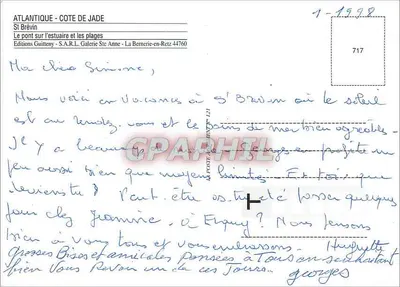 ATLANTIQUE - COTE DE JADE
St Brévin
Le pont sur l'estuaire et les plages
Editions Guitteny - S.A.R.L. Galerie Ste Anne - La Bernerie-en-Retz 44760
1-1998
717
Ma chère Simone,
Nous voici en vacances à St Brévin où le soleil
est au rendez-vous et les bains de mer bien agréables.
Il y a beaucoup Georges en profite un
peu aussi bien que moyens limités. Et toi que
deviens-tu? Peut-être as-tu été passer quelques
jours chez Jeannine, à Ergny? Nous pensons
bien à vous tous et vous embrassons. Huguette
grosses Bises et amicales pensées à Tous en souhaitant
bien vous Revoir un de ces Jours. georges
CPAPHIL